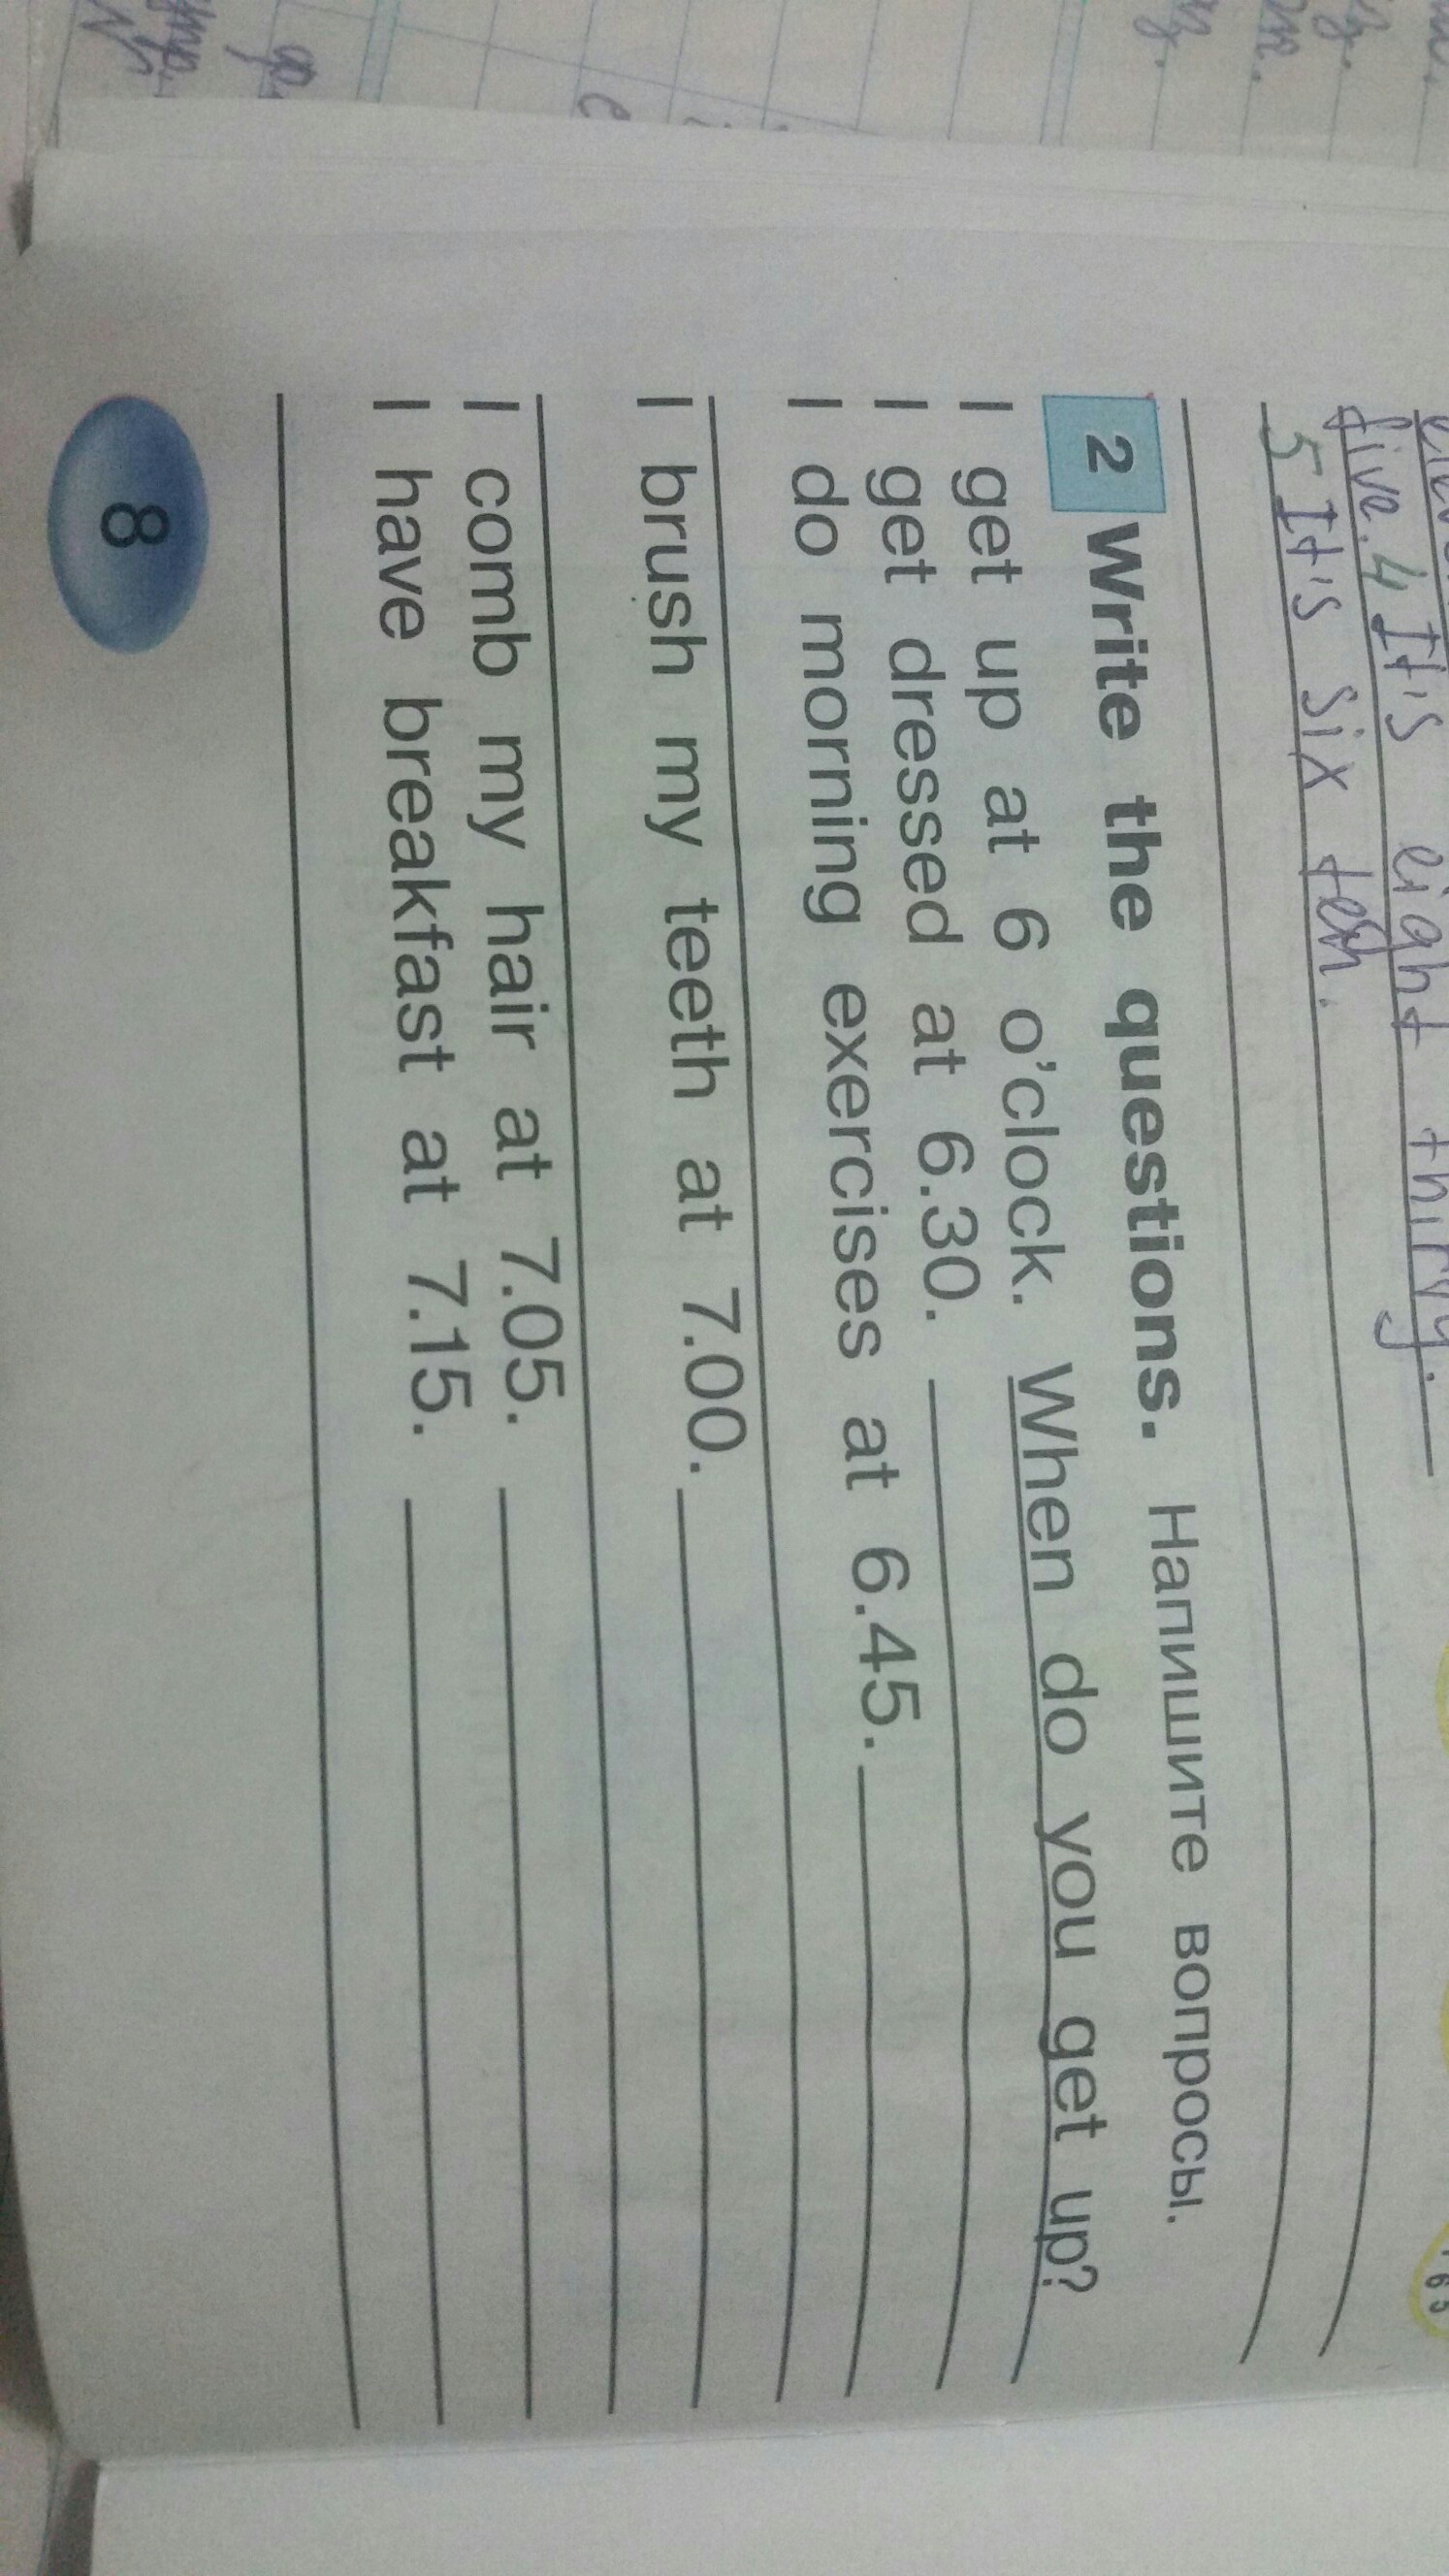 five. 4 It's eight thirty.
5 It's six ten.
2 Write the questions. Напишите вопросы.
I get up at 6 o'clock. When do you get up?
I get dressed at 6.30.
I do morning exercises at 6.45.
I brush my teeth at 7.00.
I comb my hair at 7.05.
I have breakfast at 7.15.
8